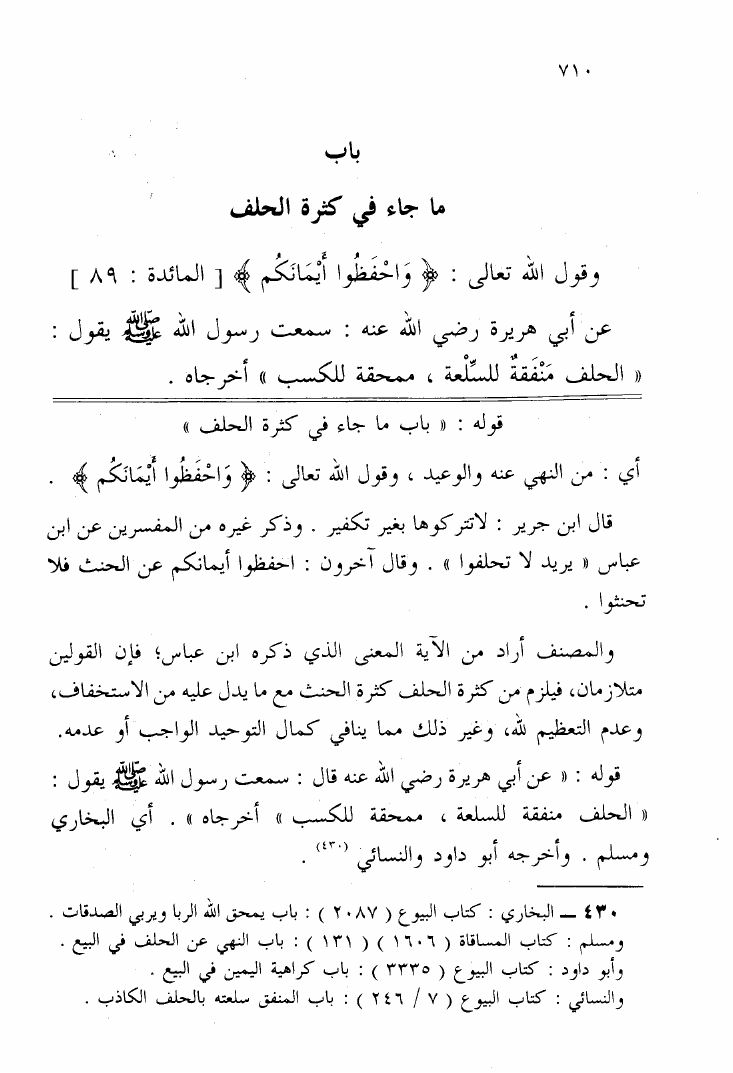 ٧١٠
باب
ما جاء في كثرة الحلف
وقول الله تعالى : ﴿ وَاحْفَظُوا أَيْمَانَكُم ﴾ [ المائدة : ٨٩ ]
عن أبي هريرة رضي الله عنه : سمعت رسول الله ﷺ يقول :
« الحلف مَنْفَقةٌ للسِّلْعة ، ممحقة للكسب » أخرجاه .
قوله : « باب ما جاء في كثرة الحلف »
أي : من النهي عنه والوعيد ، وقول الله تعالى : ﴿ وَاحْفَظُوا أَيْمَانَكُم ﴾ .
قال ابن جرير : لاتتركوها بغير تكفير . وذكر غيره من المفسرين عن ابن
عباس « يريد لا تحلفوا » . وقال آخرون : احفظوا أيمانكم عن الحنث فلا
تحنثوا .
والمصنف أراد من الآية المعنى الذي ذكره ابن عباس؛ فإن القولين
متلازمان، فيلزم من كثرة الحلف كثرة الحنث مع ما يدل عليه من الاستخفاف،
وعدم التعظيم لله، وغير ذلك مما ينافي كمال التوحيد الواجب أو عدمه.
قوله : « عن أبي هريرة رضي الله عنه قال : سمعت رسول الله ﷺ يقول :
« الحلف منفقة للسلعة ، ممحقة للكسب » أخرجاه » . أي البخاري
ومسلم . وأخرجه أبو داود والنسائي (٤٣٠) .
٤٣٠ ــ البخاري : كتاب البيوع ( ٢٠٨٧ ) : باب يمحق الله الربا ويربي الصدقات .
ومسلم : كتاب المساقاة ( ١٦٠٦ ) ( ١٣١ ) : باب النهي عن الحلف في البيع .
وأبو داود : كتاب البيوع ( ٣٣٣٥ ) : باب كراهية اليمين في البيع .
والنسائي : كتاب البيوع ( ٧ / ٢٤٦ ) : باب المنفق سلعته بالحلف الكاذب .